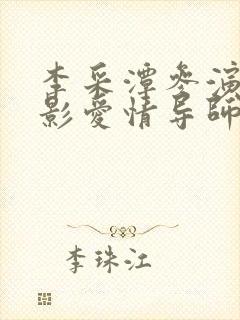 李采潭参演
影爱情导师
李珠江